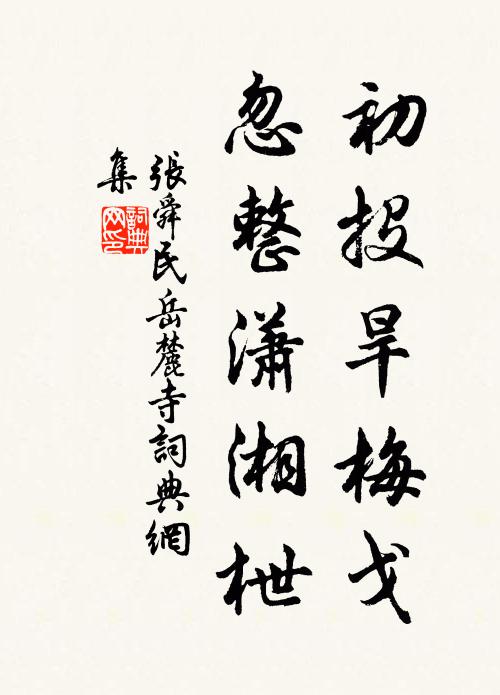 初投旱梅戈
忽整瀟湘枻
張舜民岳麓寺詞典網
集
詞典网印